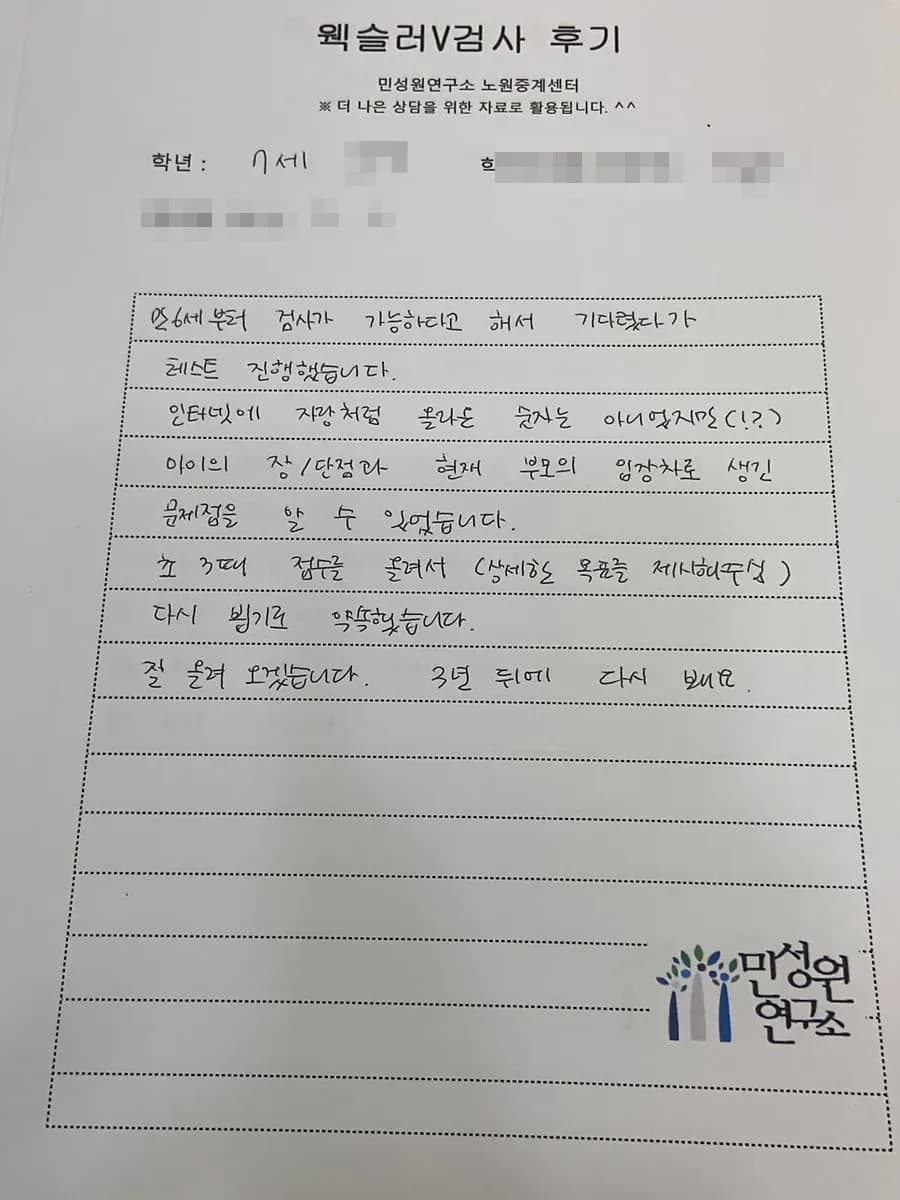 웩슬러V검사 후기
민성원연구소 노원중계센터
※ 더 나은 상담을 위한 자료로 활용됩니다. ^^
학년 : 7세
만6세부터 검사가 가능하다고 해서 기다렸다가
테스트 진행했습니다.
인터넷에 자랑처럼 올라온 숫자는 아니었지만(!?)
아이의 장/단점과 현재 부모의 입장차로 생긴
문제점을 알 수 있었습니다.
초 3때 점수를 올려서 (상세한 목표를 제시해주심)
다시 뵙기로 약속했습니다.
잘 올려 오겠습니다. 3년 뒤에 다시 봬요.
민성원
연구소